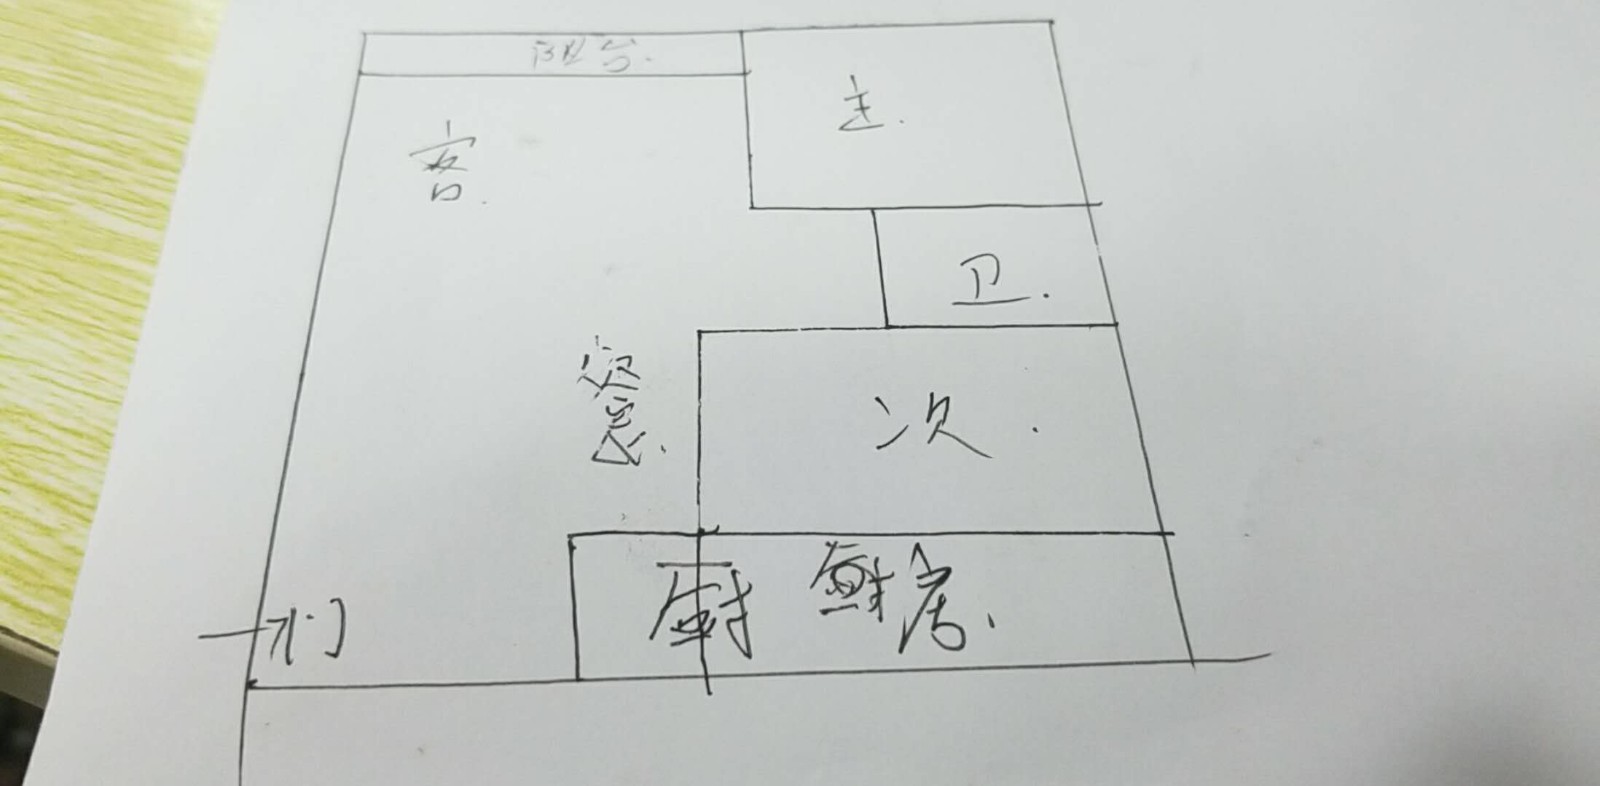 阳台.
主.
客.
卫.
次.
门
厨
厨房.